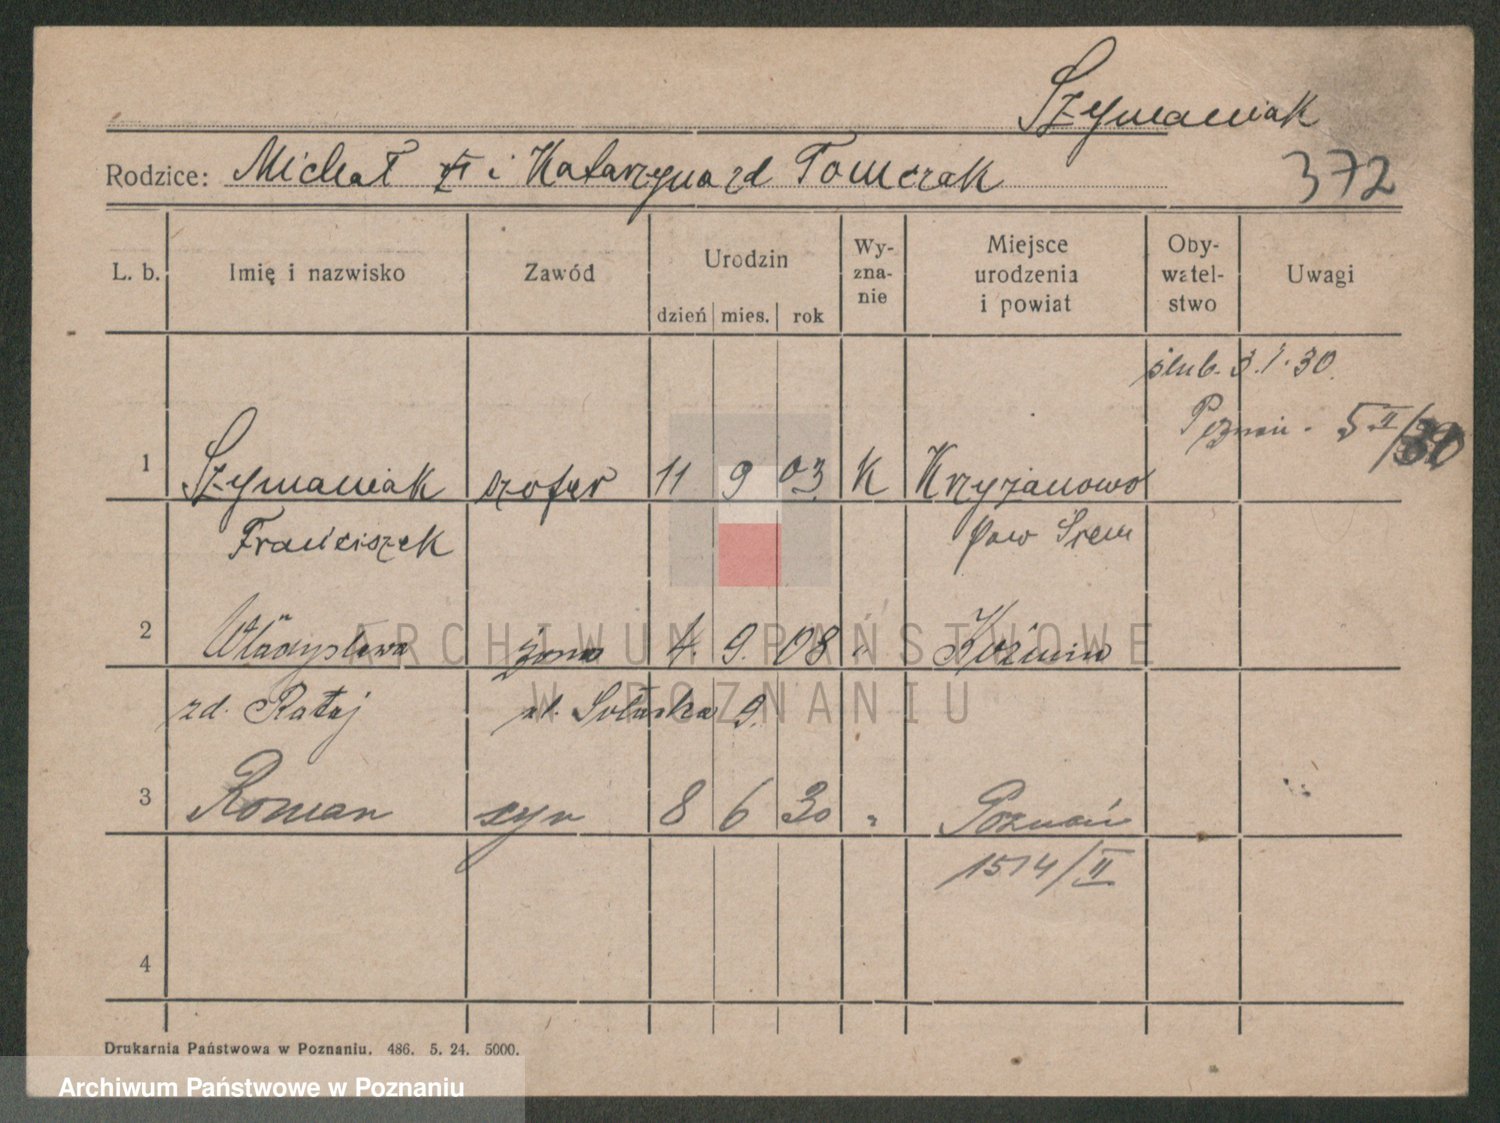 Szymaniak
Rodzice: Michał i Katarzyna zd Tomczak
372
L. b. Imię i nazwisko Zawód Urodzin dzień mies. rok Wy-zna-nie Miejsce urodzenia i powiat Oby-watel-stwo Uwagi
ślub. 3.1.30.
Poznań - 5 II/30
1 Szymaniak szofer 11 9 03 K Krzyżanowo
Franciszek pow Śrem
2 Władysława żona 4. 9. 08 " Koźmin
zd. Rataj ul. Sołacka 9.
3 Roman syn 8 6 30 " Poznań
1514/II
4
Drukarnia Państwowa w Poznaniu. 486. 5. 24. 5000.
ARCHIWUM PAŃSTWOWE
W POZNANIU
Archiwum Państwowe w Poznaniu